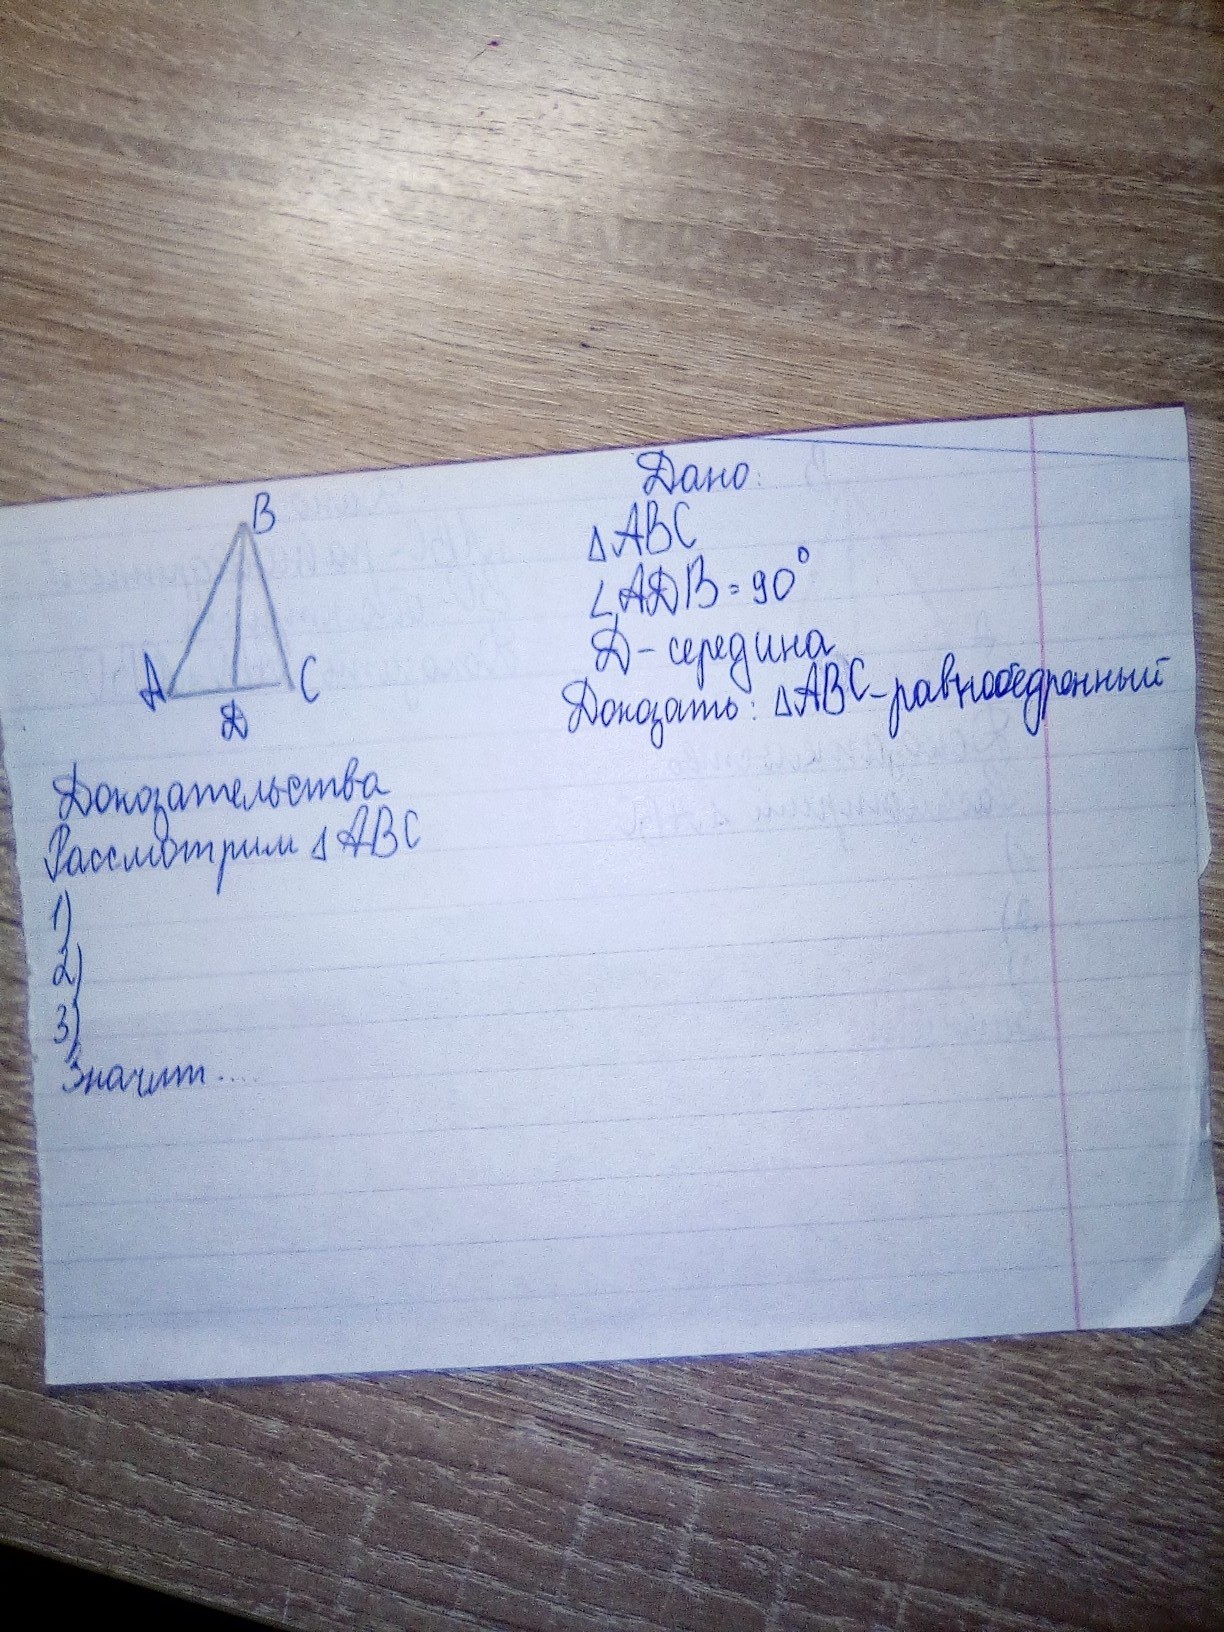 B
A
C
D
Дано:
△ABC
∠ADB=90°
D - середина
Доказать: △ABC - равнобедренный
Доказательства
Рассмотрим △ABC
1)
2)
3)
Значит....